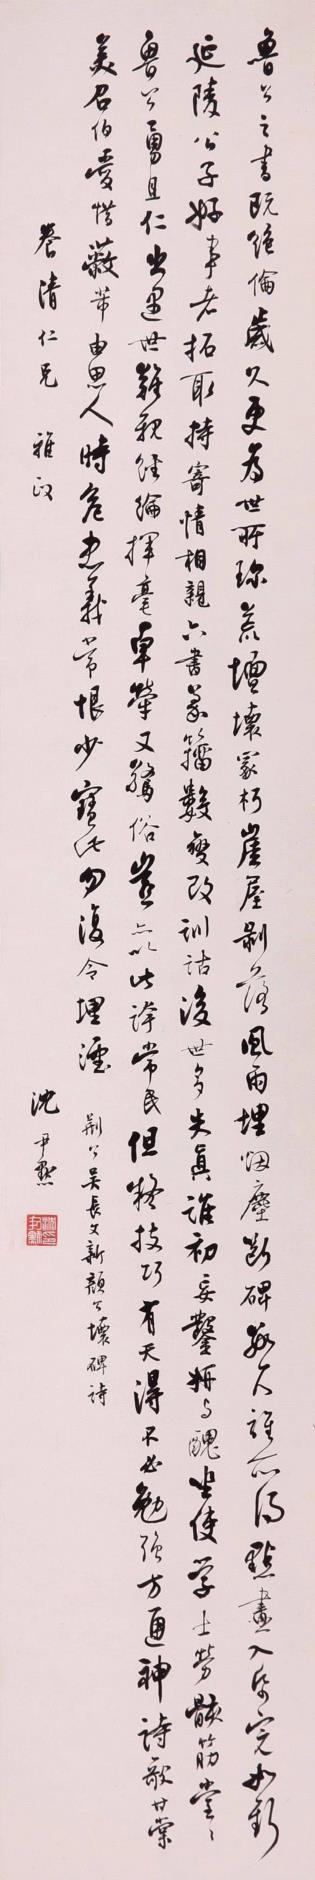 魯公之書既絕倫歲久更為世所珍荒壇壞冢朽崖屋剝落風雨埋煙塵斷碑數尺誰所得點畫入紙完如新
延陵公子好事者拓取持寄情相親六書篆籀數變改訓詁後世多失真誰初妄鑿妍與醜坐使學士勞骸筋堂〻
魯公勇且仁出遇世難親經綸揮毫卓犖又驚俗豈亦以此誇常民但疑技巧有天得不必勉強方通神詩歌甘棠
美召伯愛惜蔽芾由思人時危忠義常恨少寶此勿復令埋湮
荊公吳長文新顏公壞碑詩
養清仁兄 雅政
沈尹默